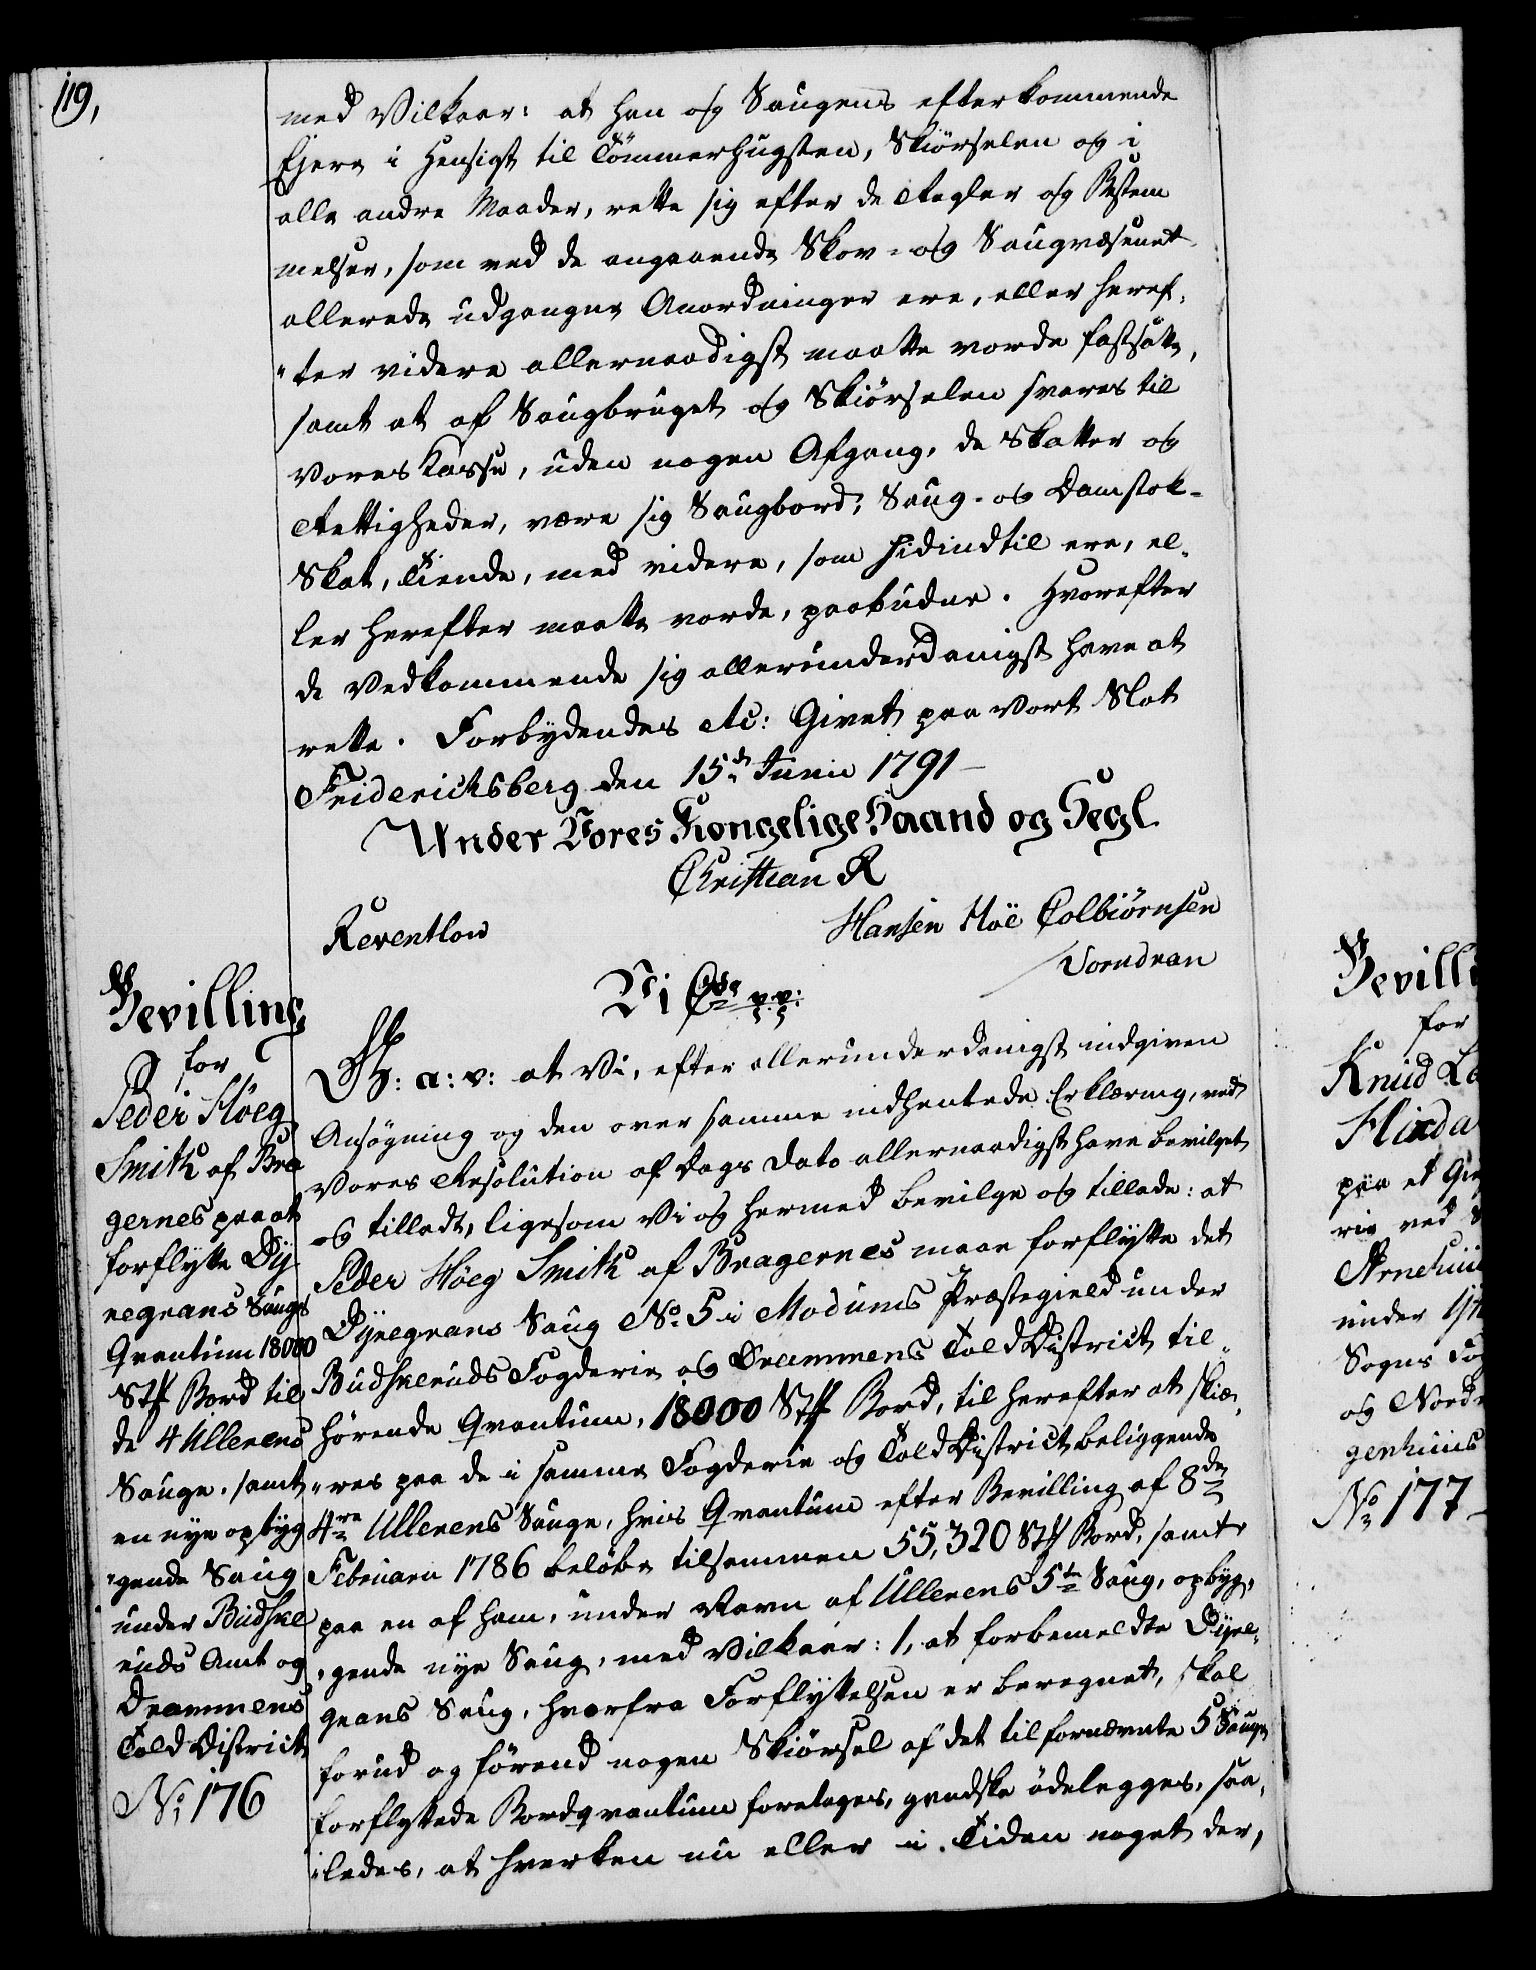 119,
med Vilkaar: at han og Saugens efterkommende
Ejere i Hensigt til Tömmerhugsten, Skiörselen og i
alle andre Maader, rette sig efter de Regler og Bestem
melser, som ved de angaaende Skov- og Saugvæsenet
allerede udgangne Anordninger ere, eller heref,
"ter videre allernaadigst maatte vorde fastsatte,
samt at af Saugbruget og Skiörselen svares til
Vores Kasse, uden nogen Afgang, de Skatter og
Rettigheder, være sig Saugbord; Saug- og Damstok-
Skat, Tiende, med videre, som hidindtil ere, el,
ler herefter maatte vorde, paabudne. Hvorefter
de Vedkommende sig allerunderdanigst have at
rette. Forbydendes etc: Givet paa Vort Slot
Friderichsberg den 15de Junii 1791-
Under Vores Kongelige Haand og Segl
Christian R
Reventlow
Hansen Höe Colbiörnsen
/Vorndran
Bevilling
for
Peder Höeg
Smith af Bra
gernes paa at
forflytte Dy
regrans Saugs
Qvantum 18000
St// Bord til
de 4 Ullerens
Sauge, samt
en nye opbyg
"gende Saug
under Budske
ruds Amt og
Drammens
Told District
No 176
Vi C7de v: v:
G: a: v: at Vi, efter allerunderdanigst indgiven
Ansögning og den over samme indhentede Erklæring, ved
Vores Resolution af Dags Dato allernaadigst have bevilget
og tilladt, ligesom Vi og hermed bevilge og tillade: at
Peder Höeg Smith af Bragernes maae forflytte det
Dyregrans Saug No 5 i Modums Præstegield under
Budskeruds Fogderie og Drammens Told District til,
hörende Qvantum, 18000 St// Bord, til herefter at skiæ,
"res paa de i samme Fogderie og Told District beliggende
4re Ullerens Sauge, hvis Qvantum efter Bevilling af 8de
Februarii 1786 belöbe tilsammen 55,320 St// Bord, samt
paa en af ham, under Navn af Ullerens 5te Saug, opbyg,
"gende nye Saug, med Vilkaar: 1, at forbemeldte Dyre,
grans Saug, hvorfra Forflyttelsen er beregnet, skal
forud og förend nogen Skiörsel af det til fornævnte 5 Sauge
forflyttede Bordqvantum foretages, gandske ödelegges, saa,
"ledes, at hverken nu eller i Tiden noget der,
Bevilli
for
Knud
Hinda
paa et
riv ved
under
Sogns Fog
og Nord
genhuus
No 177-